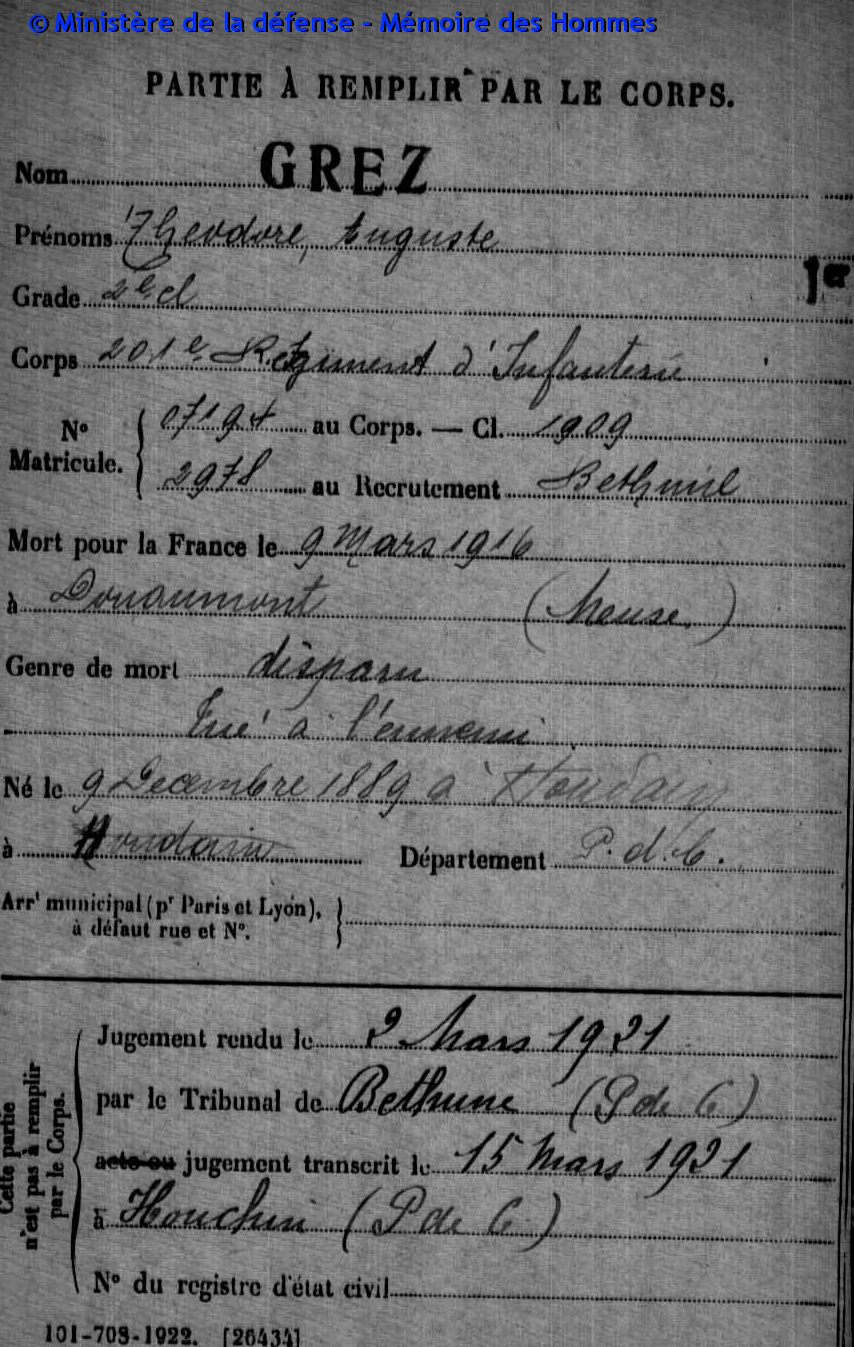 © Ministère de la défense - Mémoire des Hommes
PARTIE À REMPLIR PAR LE CORPS.
Nom GREZ
Prénoms Théodore, Auguste
1er
Grade 2e cl
Corps 201e Régiment d'Infanterie
N° Matricule. 07194 au Corps. — Cl. 1909
2978 au Recrutement Béthune
Mort pour la France le 9 Mars 1916
à Douaumont (Meuse)
Genre de mort disparu
Tué à l'ennemi
Né le 9 Decembre 1889 à Houdain
à Houdain Département P. d. C.
Arrt municipal (pr Paris et Lyon),
à défaut rue et N°.
Cette partie
n'est pas à remplir
par le Corps.
Jugement rendu le 2 Mars 1921
par le Tribunal de Bethune (P de C)
acte ou jugement transcrit le 15 Mars 1921
à Houchin (P de C)
N° du registre d'état civil
101-708-1922. [26434]